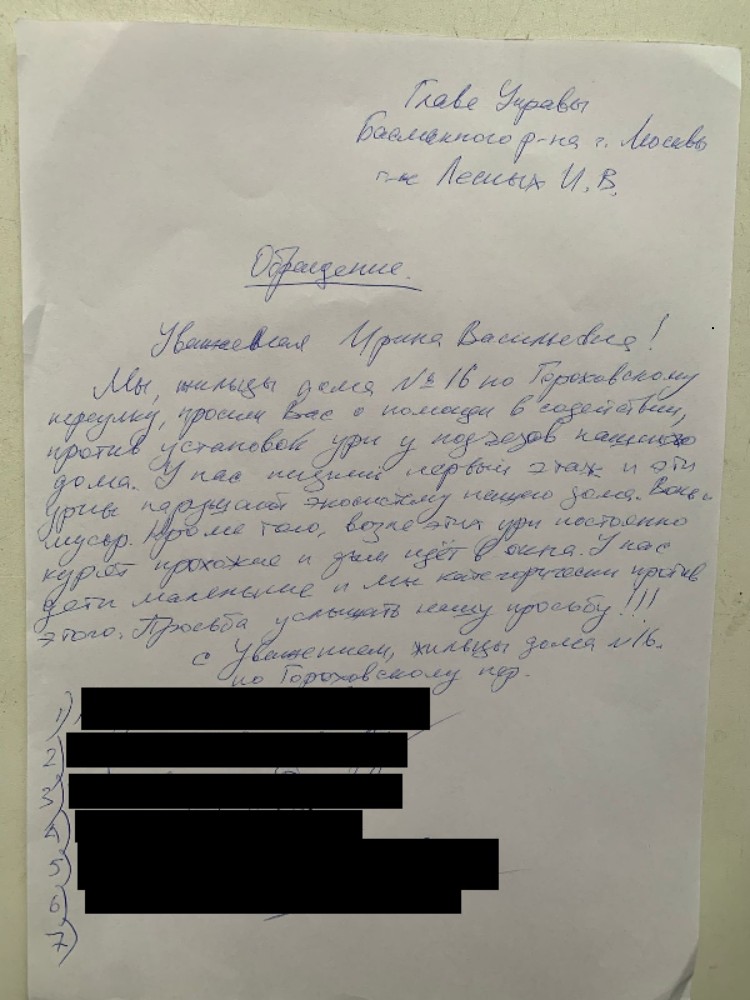 Главе Управы
Басманного р-на г. Москвы
г-же Лесных И.В.
Обращение.
Уважаемая Ирина Васильевна!
Мы, жильцы дома №16 по Гороховскому
переулку, просим Вас о помощи в содействии,
против установок урн у подъездов нашего
дома. У нас низкий первый этаж и эти
урны нарушают экосистему нашего дома. Вонь,
мусор. Кроме того, возле этих урн постоянно
курят прохожие и дым идёт в окна. У нас
дети маленькие и мы категорически против
этого. Просьба услышать нашу просьбу!!!
с Уважением, жильцы дома №16.
по Гороховскому пер.
1)
2)
3)
4)
5)
6)
7)